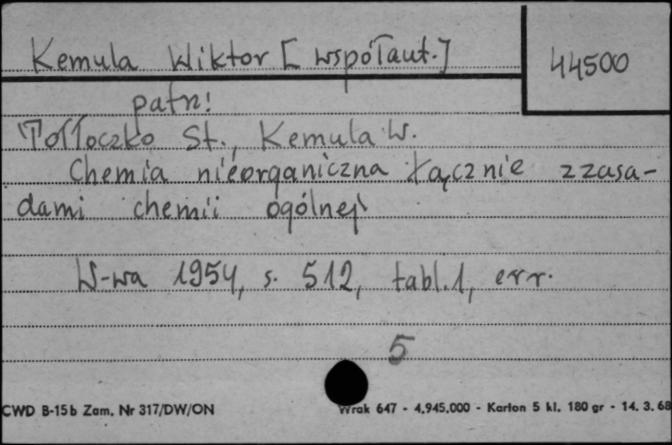 Kemula Wiktor [współaut.]
44500
patrz!
Tołłoczko St., Kemula W.
Chemia nieorganiczna łącznie z zasa-
dami chemii ogólnej
W-wa 1954, s. 512, tabl. 1, err.
5
CWD B-15b Zam. Nr 317/DW/ON
Wrak 647 - 4.945.000 - Karton 5 kl. 180 gr - 14. 3. 68